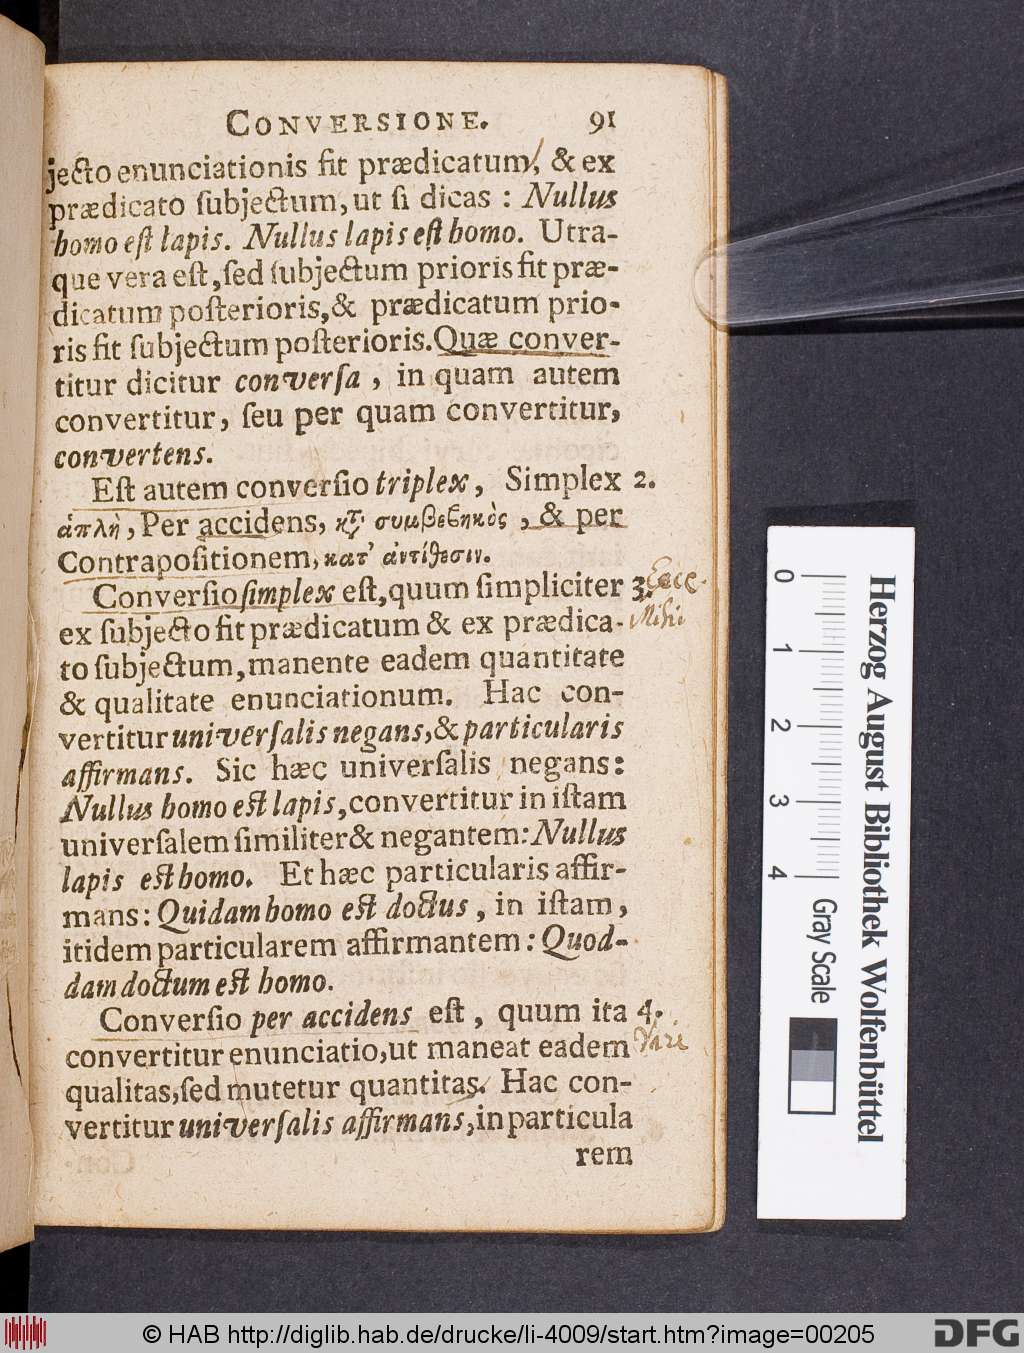 CONVERSIONE. 91
jecto enunciationis fit prædicatum, & ex
prædicato ſubjectum, ut ſi dicas : Nullus
homo eſt lapis. Nullus lapis eſt homo. Utra-
que vera eſt, ſed ſubjectum prioris fit præ-
dicatum poſterioris, & prædicatum prio-
ris fit ſubjectum poſterioris. Quæ conver-
titur dicitur converſa , in quam autem
convertitur, ſeu per quam convertitur,
convertens.
Eſt autem converſio triplex, Simplex 2.
ἁπλὴ, Per accidens, κτ̃ συμβεβηκὸς , & per
Contrapoſitionem, κατ' ἀντίθεσιν.
Converſio ſimplex eſt, quum ſimpliciter 3. Fece
ex ſubjecto fit prædicatum & ex prædica- Mihi
to ſubjectum, manente eadem quantitate
& qualitate enunciationum. Hac con-
vertitur univerſalis negans, & particularis
affirmans. Sic hæc univerſalis negans:
Nullus homo est lapis, convertitur in iſtam
univerſalem ſimiliter & negantem: Nullus
lapis est homo. Et hæc particularis affir-
mans: Quidam homo est doctus , in iſtam,
itidem particularem affirmantem : Quod-
dam doctum est homo.
Converſio per accidens eſt , quum ita 4.
convertitur enunciatio, ut maneat eadem
qualitas, ſed mutetur quantitas. Hac con-
vertitur univerſalis affirmans, in particula
rem
0 1 2 3 4
Herzog August Bibliothek Wolfenbüttel
Gray Scale
© HAB http://diglib.hab.de/drucke/li-4009/start.htm?image=00205
DFG